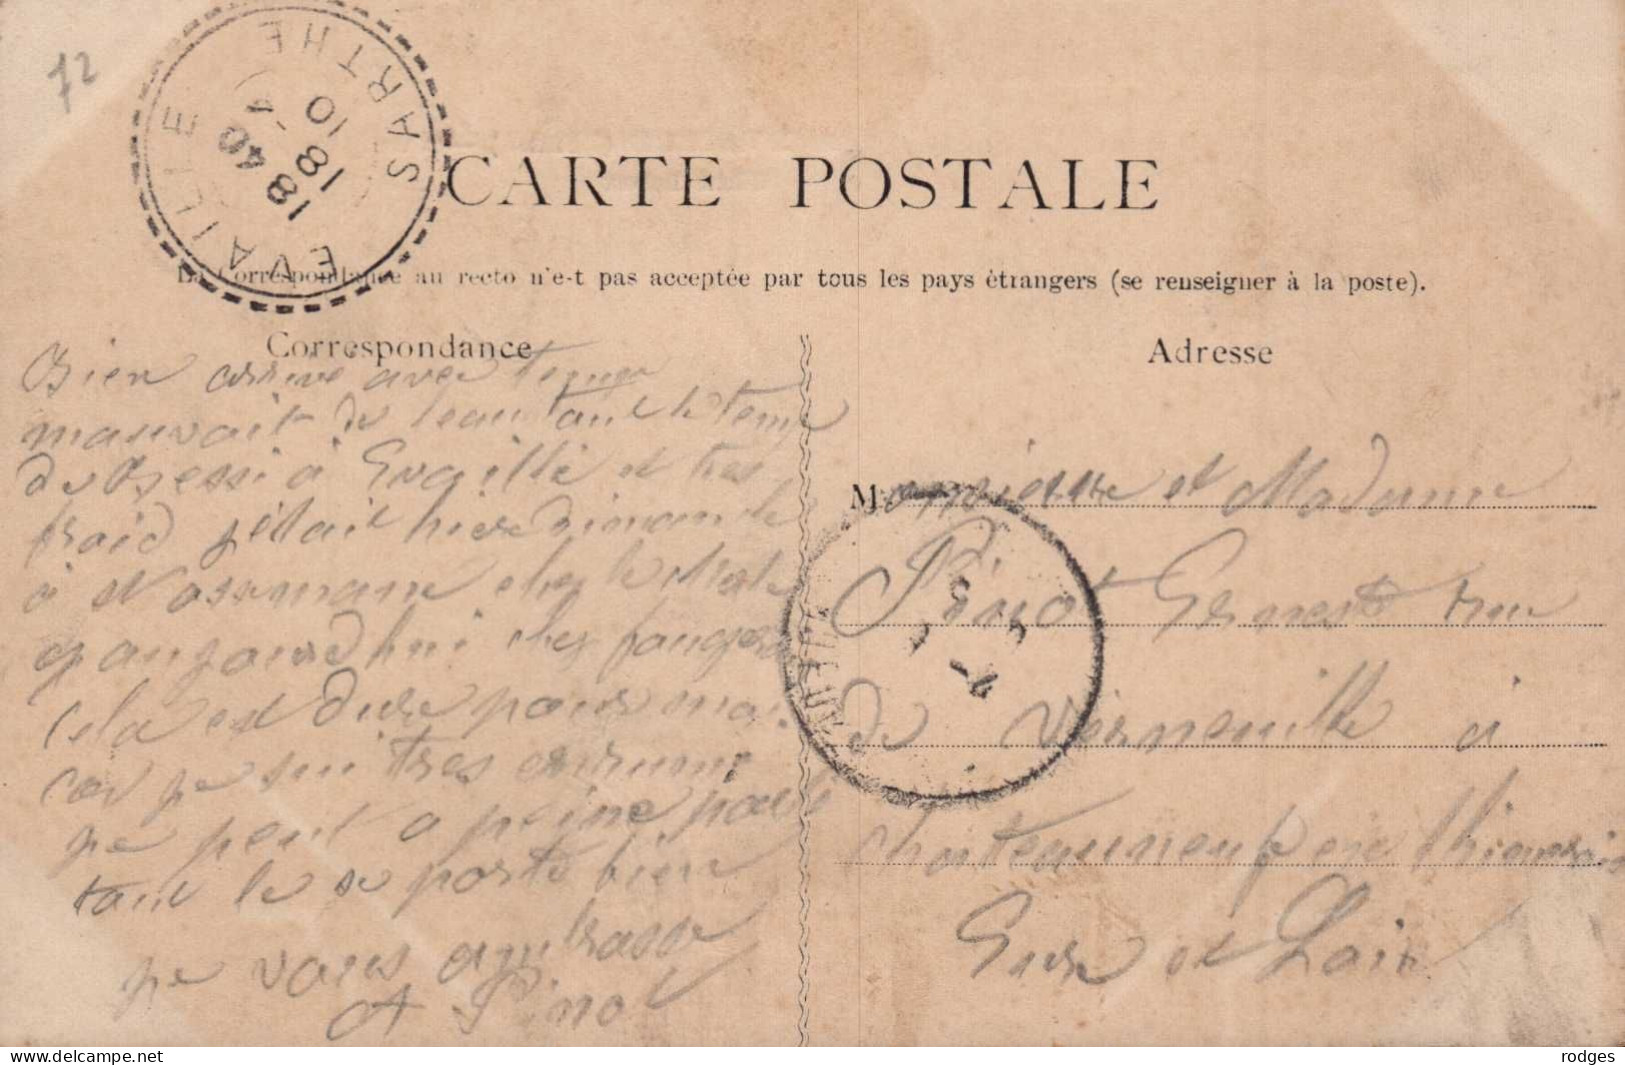 72
EVAILLE SARTHE
18 40
18 -4
10
CARTE POSTALE
La Correspondance au recto n'e-t pas acceptée par tous les pays étrangers (se renseigner à la poste).
Correspondance
Adresse
Bien arrive avec
mauvait de leau tout le temp
de Bessé à Evaillé et tres
fraid jétait hier dimanche
à chez
aujourdhui chez
cela est dure pour moi
car je sui tres enrumé
je peut a peine parlé
tout le se porte bien
je vous ambrasse
A Pinot
Monsieur et Madame
Pinot Ernest rue
de Verneuille à
Chateauneuf en Thimerais
Eure et Loir
delcampe.net
rodges